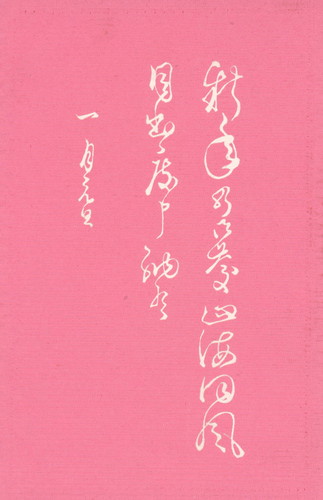 新年の御慶山海同風
目出度申納候
一月元旦